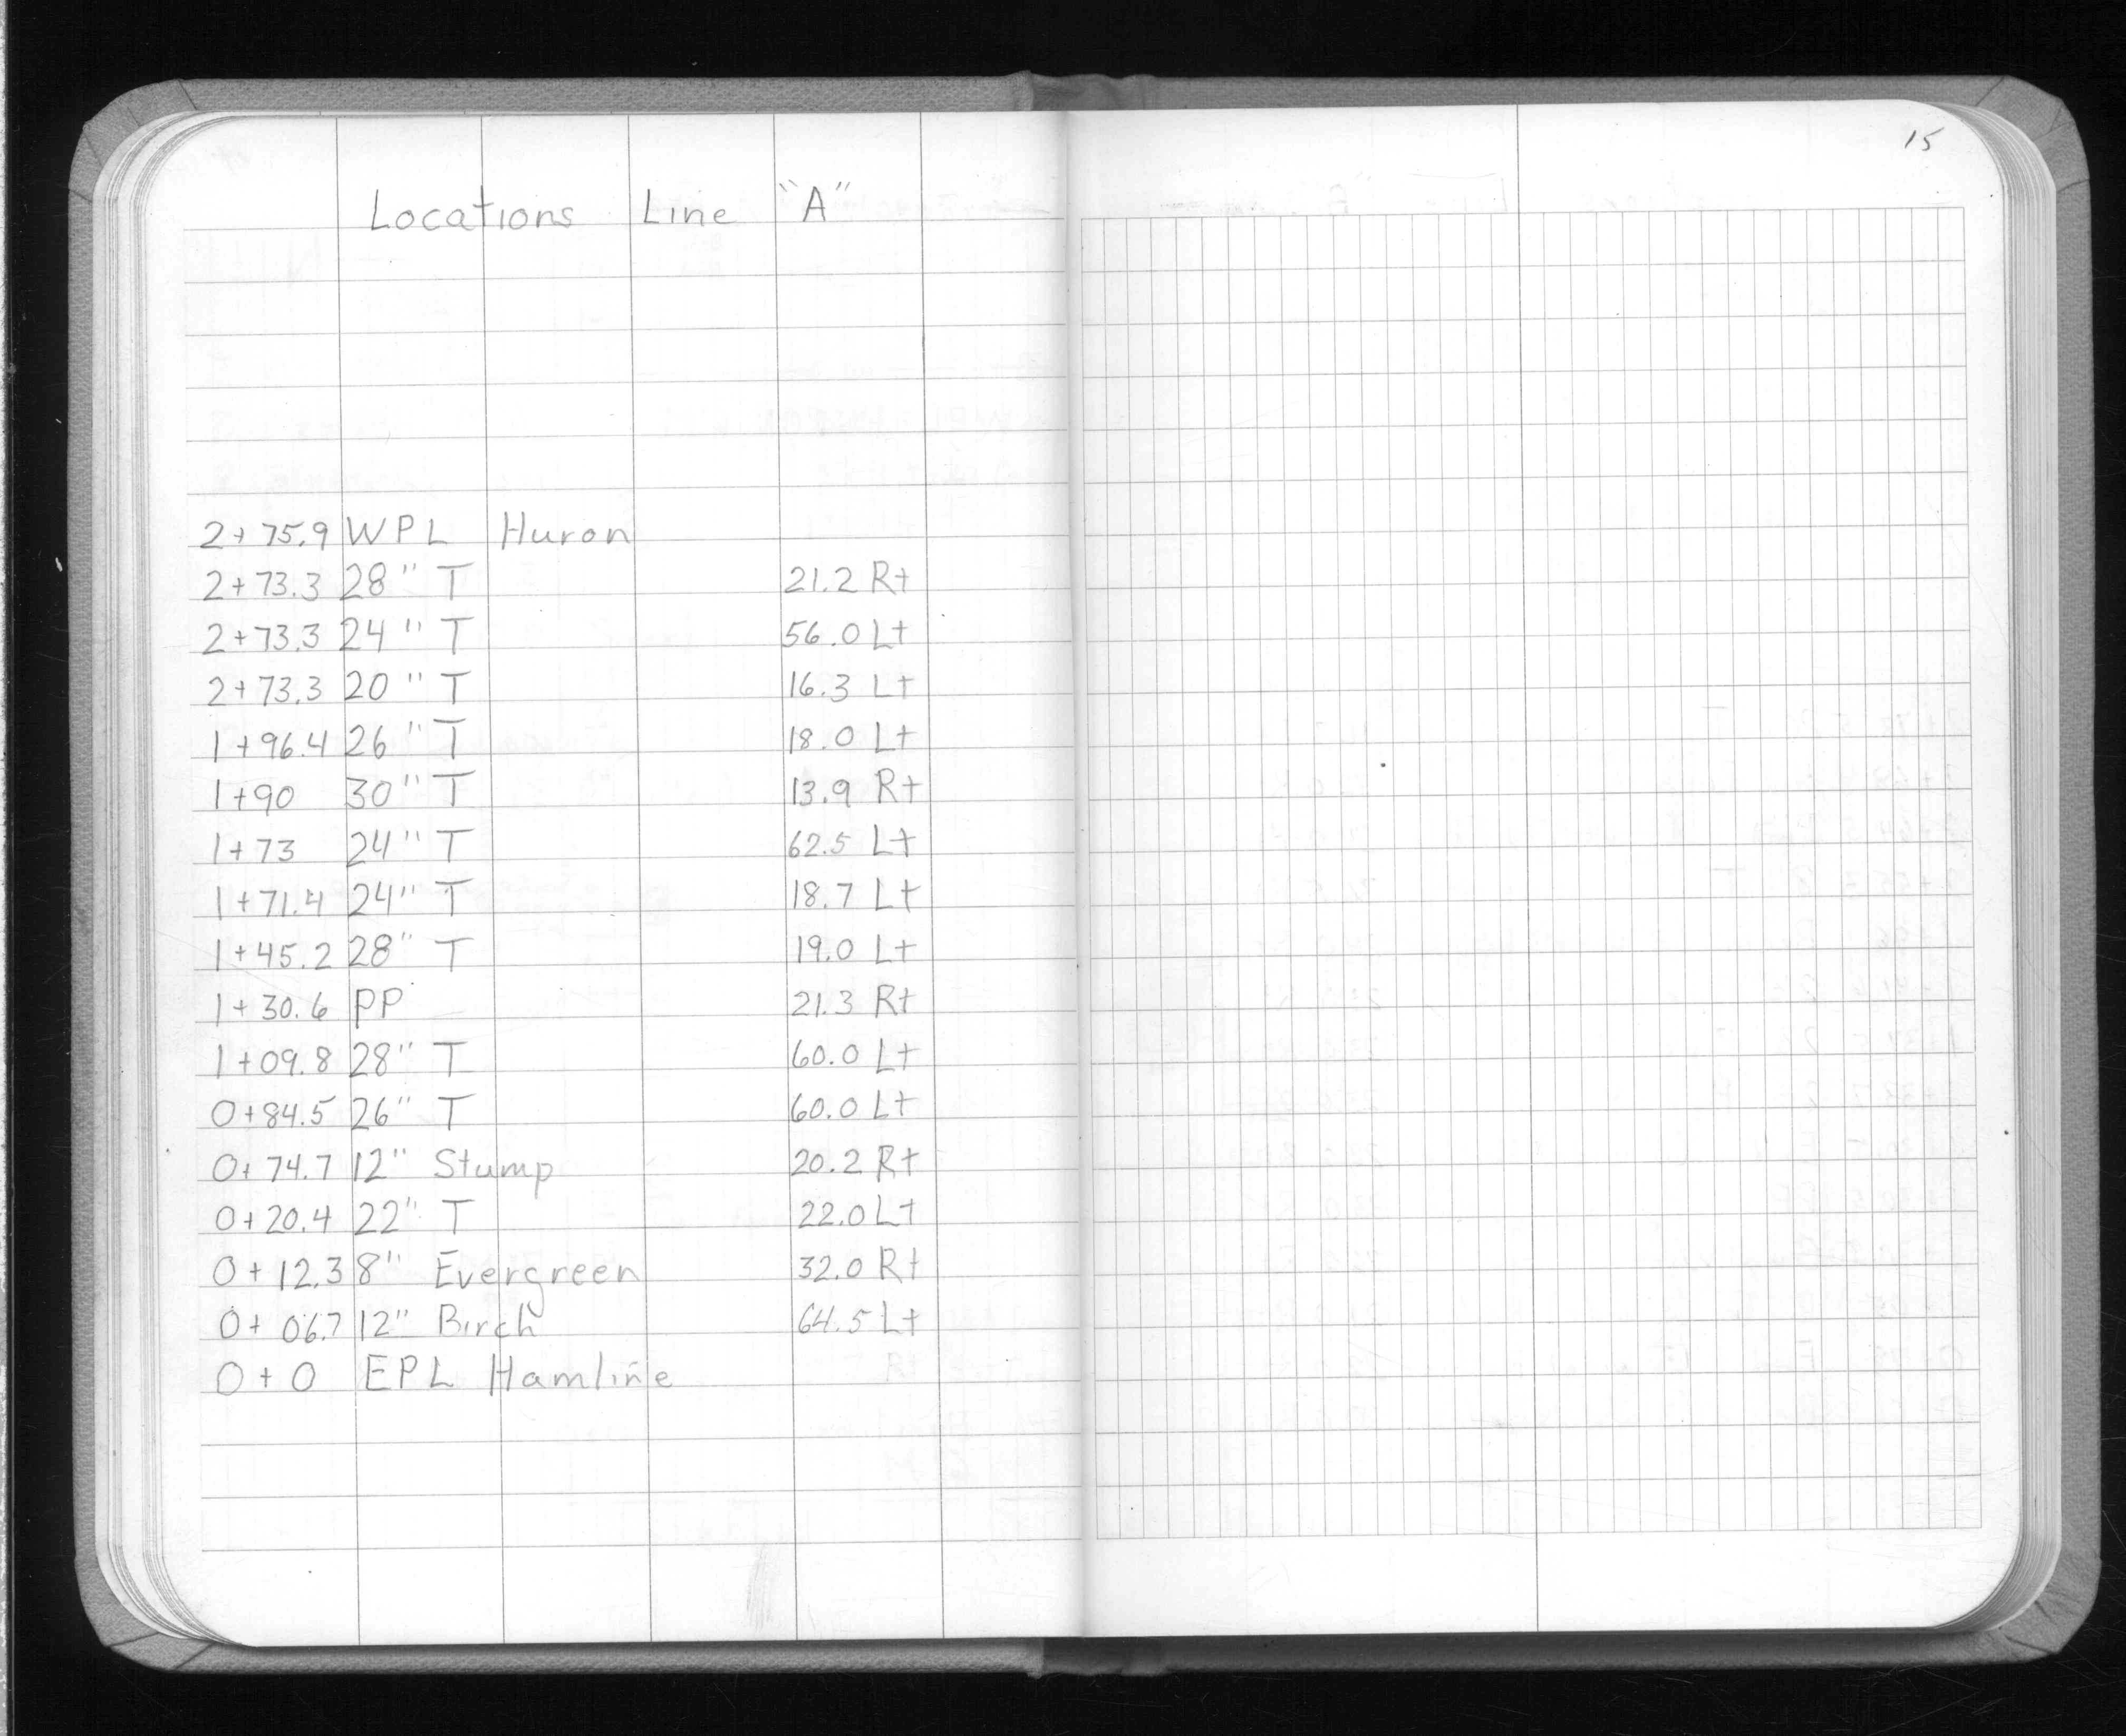 15
Locations Line "A"
2+75.9 WPL Huron
2+73.3 28" T 21.2 Rt
2+73.3 24" T 56.0 Lt
2+73.3 20" T 16.3 Lt
1+96.4 26" T 18.0 Lt
1+90 30" T 13.9 Rt
1+73 24" T 62.5 Lt
1+71.4 24" T 18.7 Lt
1+45.2 28" T 19.0 Lt
1+30.6 PP 21.3 Rt
1+09.8 28" T 60.0 Lt
0+84.5 26" T 60.0 Lt
0+74.7 12" Stump 20.2 Rt
0+20.4 22" T 22.0 Lt
0+12.3 8" Evergreen 32.0 Rt
0+06.7 12" Birch 64.5 Lt
0+0 EPL Hamline